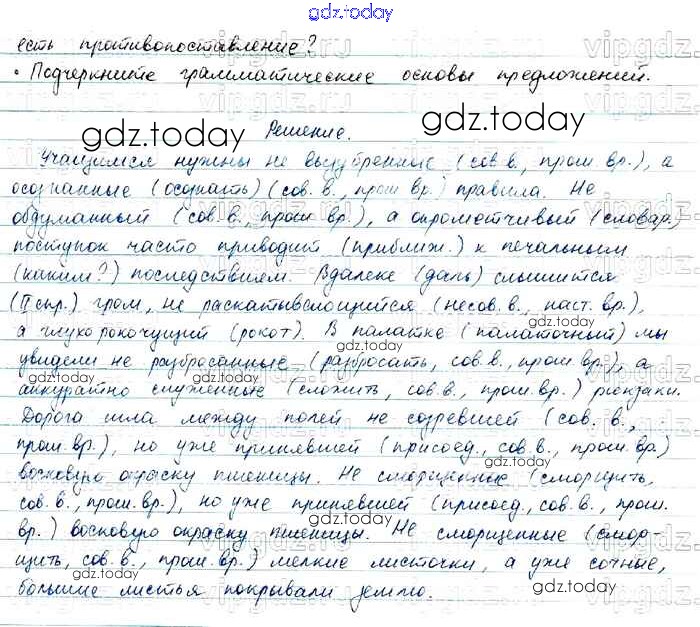 gdz.today
есть противопоставление?
• Подчеркните грамматические основы предложений.
gdz.today
gdz.today
Решение.
Учащимся нужны не вызубренные (сов. в., прош. вр.), а
осознанные (осознать) (сов. в., прош. вр.) правила. Не
обдуманный (сов. в., прош. вр.), а опрометчивый (словар.)
поступок часто приводит (приближ.) к печальным
(каким?) последствиям. Вдалеке (даль) слышится
(II спр.) гром, не раскатывающийся (несов. в., наст. вр.),
а глухо рокочущий (рокот). В палатке (палаточный) мы
увидели не разбросанные (разбросать, сов. в., прош. вр.), а
аккуратно сложенные (сложить, сов. в., прош. вр.) рюкзаки.
Дорога шла между полей не созревшей (сов. в.,
прош. вр.), но уже принявшей (присоед., сов. в., прош. вр.)
восковую окраску пшеницы. Не сморщенные (сморщить,
сов. в., прош. вр.), но уже принявшей (присоед., сов. в., прош.
вр.) восковую окраску пшеницы. Не сморщенные (смор-
щить, сов. в., прош. вр.) мелкие листочки, а уже сочные,
большие листья покрывали землю.